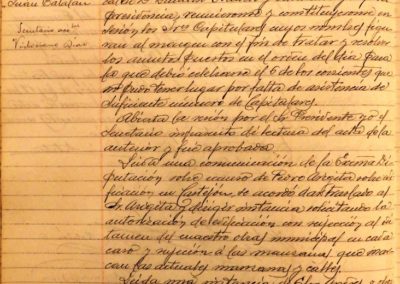 Juan Catalán
Secretario acctal
Victoriano Diez
Presidencia, reunieronse y constituyeronse en
sesion, los Sres Capitulares cuyos nombres figu-
ran al margen con el fin de tratar y resolver
los asuntos puestos en el orden del dia para
la que debió celebrarse el 5 de los corrientes que
no pudo tener lugar por falta de asistencia de
suficiente numero de Capitulares.
Abierta la sesión por el Sr Presidente yo el
Secretario infrascrito dí lectura del acta de la
anterior y fué aprobada.
Leida una comunicación de la Excma Di-
putación sobre
en Castejón, se acordó dar traslado al
Sr. y dirigir instancia solicitando la
autorización de edificación con sujeción al
del maestro obras municipal en cada
caso y sujeción á las manzanas que mar-
can las actuales manzanas y calles.
Leida una instancia